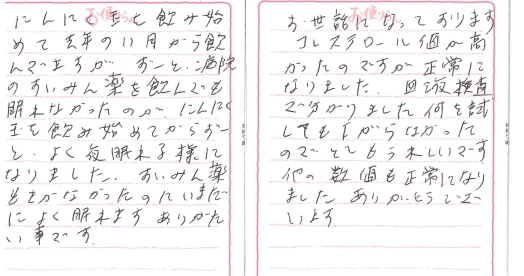 お便りから
にんにく玉を飲み始
めて去年の11月から飲
んでますが ずーと、病院
のすいみん薬を飲んでも
眠れなかったのが、にんにく
玉を飲み始めてからずー
と、よく夜眠れる様に
なりました。すいみん薬
もきかなかったのにいまだ
によく眠れます ありがた
い事です。
お世話になっております
コレステロール値が高
かったのですが正常に
なりました。 血液検査
で分かりました 何を試
しても下がらなかった
のでとてもうれしいです
他の数値も正常になり
ました ありがとうござ
います